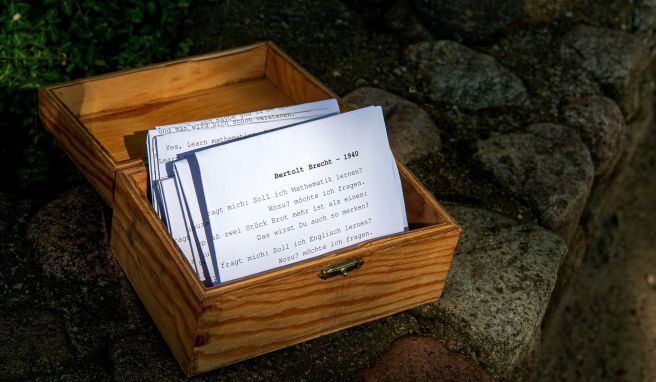 you
God man wird Dich schon verstehen,
Yes, learn mathemati
learn
Bertolt Brecht - 1940
fragt mich: Soll ich Mathematik lernen?
Wozu? möchte ich fragen.
zwei Stück Brot mehr ist als eines;
Das wirst Du auch so merken!
fragt mich: Soll ich Englisch lernen?
Wozu? möchte ich fragen.